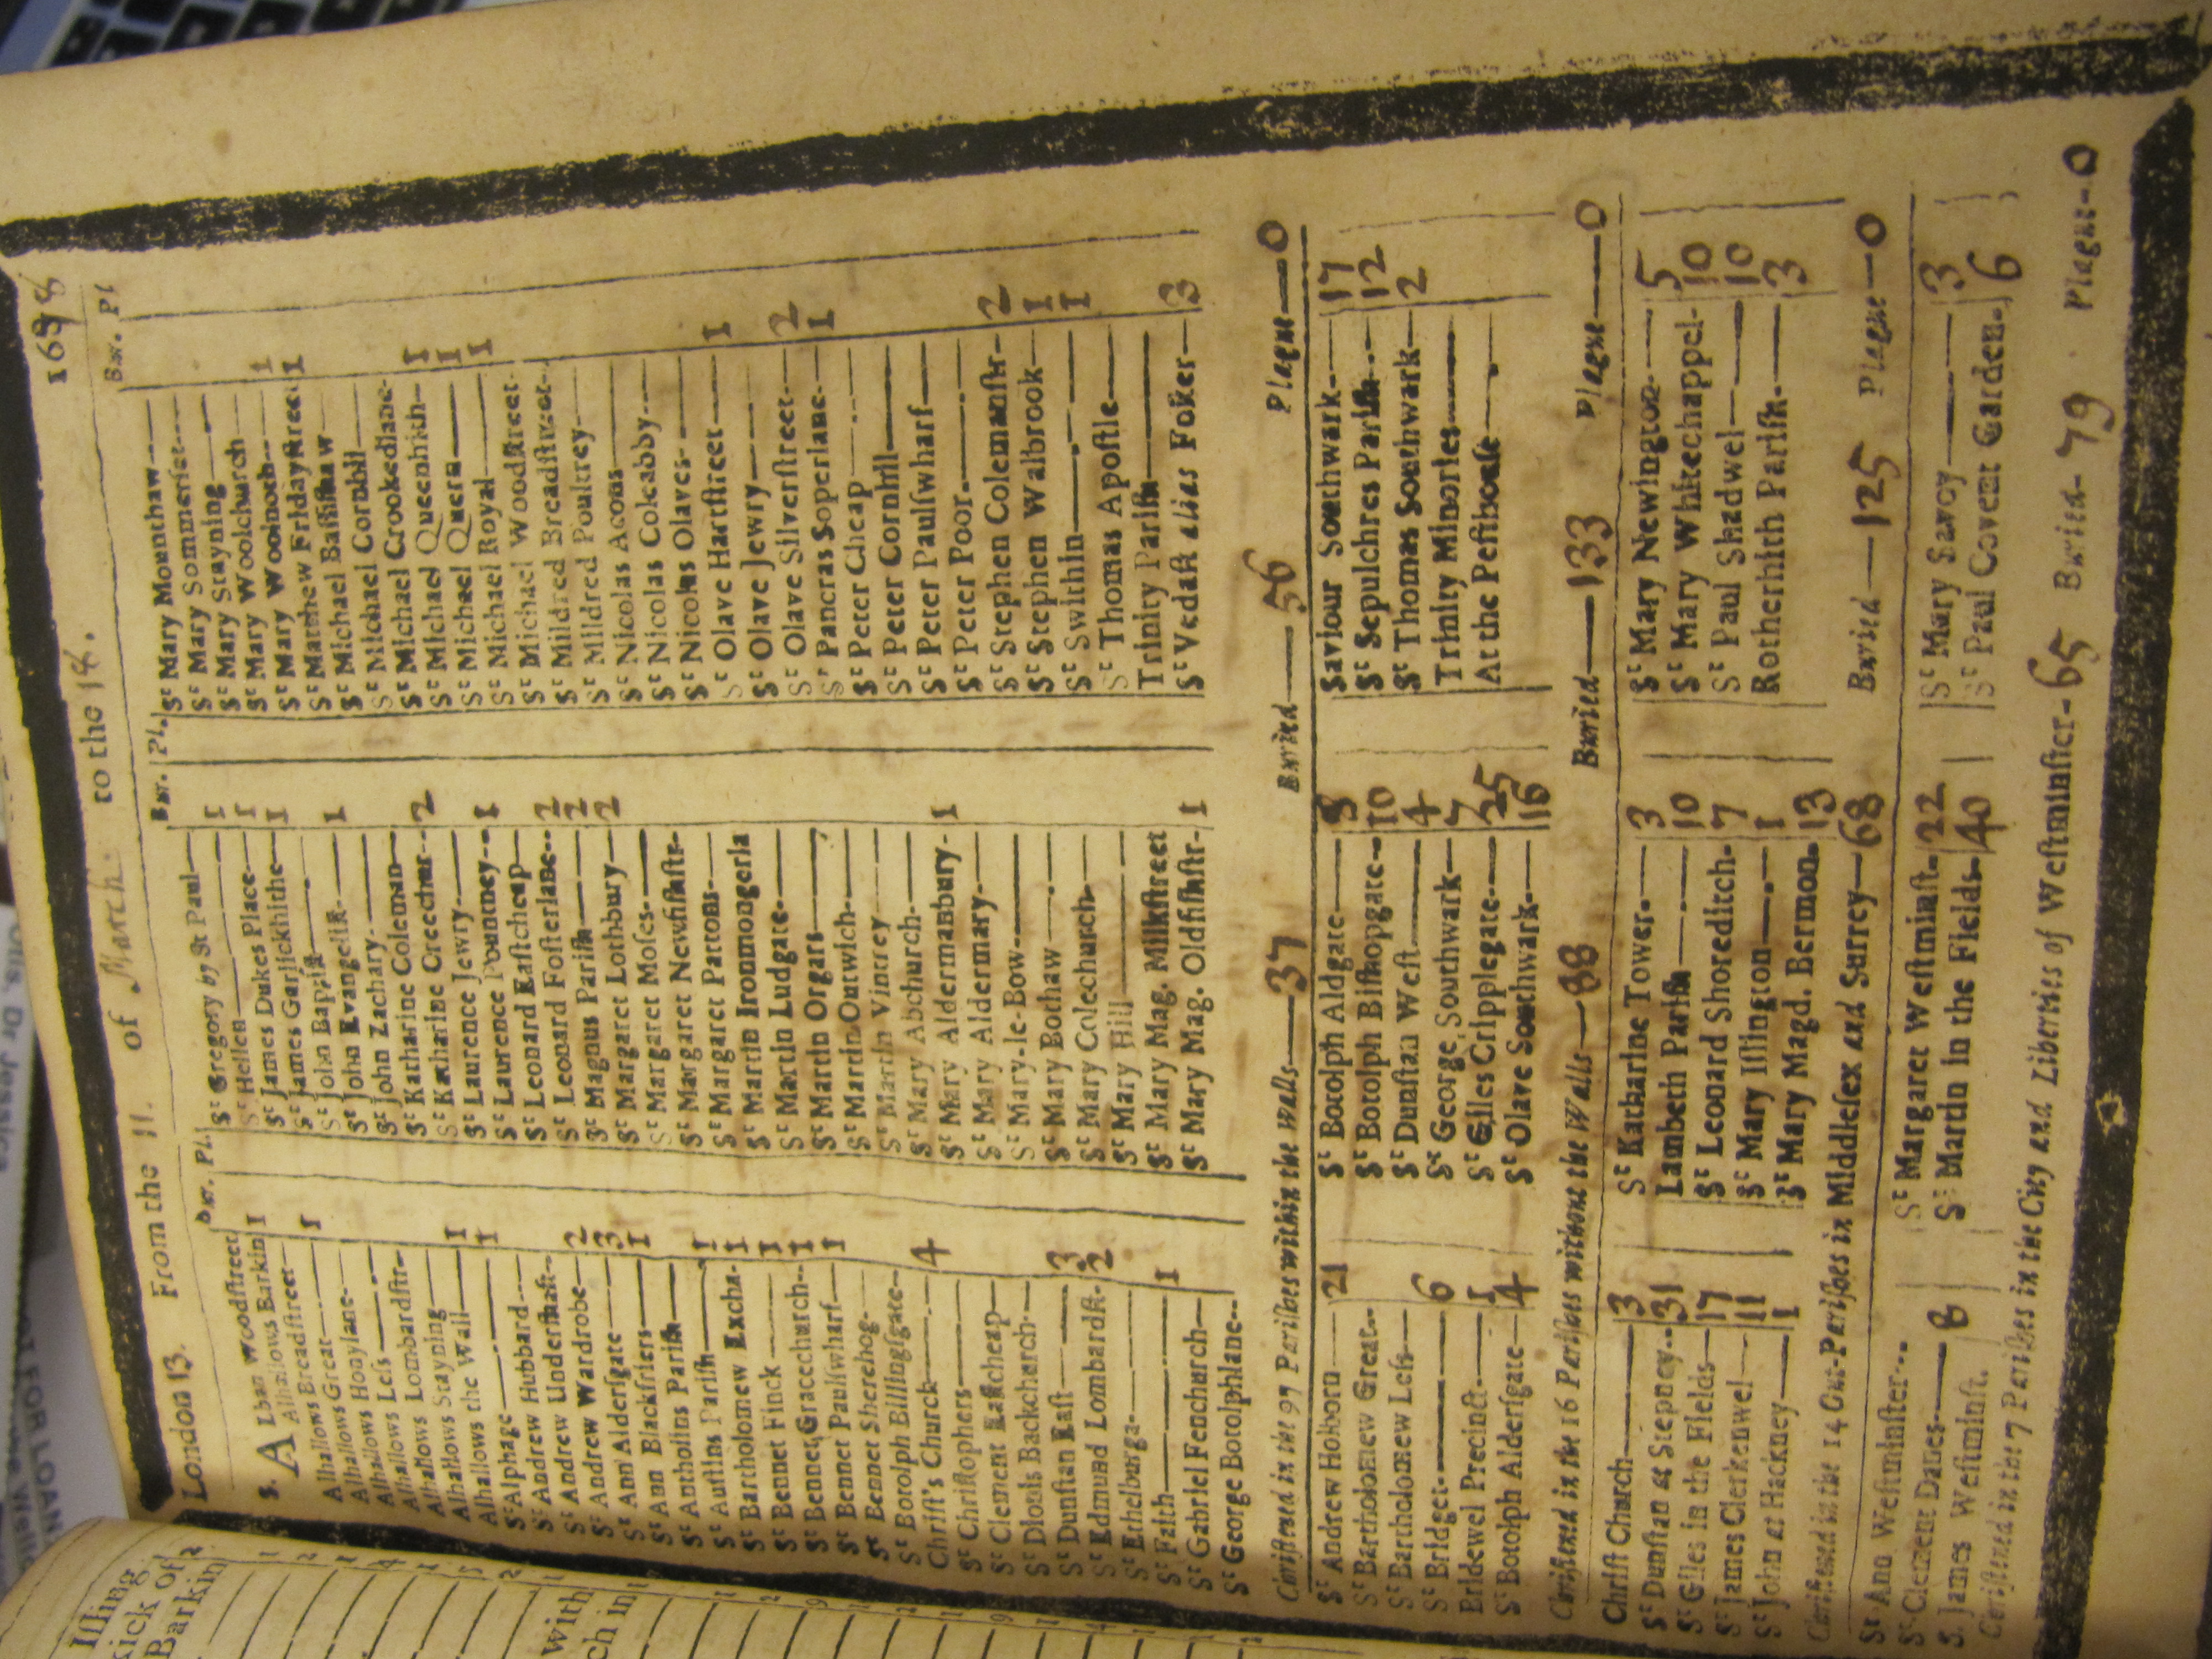 London 13. From the 11. of March to the 18. 1698
Bur. Pl.
S. ALban Woodstreet
Alhallows Barkin 1
Alhallows Breadstreet
Alhallows Great 1
Alhallows Honylane
Alhallows Less
Alhallows Lombardstr
Alhallows Stayning
Alhallows the Wall 1
St Alphage 1
St Andrew Hubbard
St Andrew Undershaft
St Andrew Wardrobe 2
St Ann Aldersgate 3
St Ann Blackfriers 1
St Antholins Parish
St Austins Parish 1
St Bartholomew Excha. 1
St Bennet Finck 1
St Bennet Gracechurch 1
St Bennet Paulswharf 1
St Bennet Sherehog
St Botolph Billingsgate
Christ's Church 4
St Christophers
St Clement Eastcheap
St Dionis Backchurch
St Dunstan East 3
St Edmund Lombardst. 2
St Ethelburga
St Faith 1
St Gabriel Fenchurch
St George Botolphlane
Bur. Pl.
St Gregory by St Paul
St Hellen 1
St James Dukes Place 1
St James Garlickhithe 1
St John Baptist
St John Evangelist 1
St John Zachary
St Katharine Coleman
St Katharine Creechur 2
St Laurence Jewry
St Laurence Pountney 1
St Leonard Eastcheap
St Leonard Fosterlane 2
St Magnus Parish 2
St Margaret Lothbury 2
St Margaret Moses
St Margaret Newfishstr
St Margaret Pattons
St Martin Ironmongerla
St Martin Ludgate
St Martin Orgars
St Martin Outwich
St Martin Vintrey
St Mary Abchurch
St Mary Aldermanbury 1
St Mary Aldermary
St Mary-le-Bow
St Mary Bothaw
St Mary Colechurch
St Mary Hill
St Mary Mag. Milkstreet
St Mary Mag. Oldfishstr 1
Bur. Pl
St Mary Mounthaw
St Mary Sommerset
St Mary Stayning
St Mary Woolchurch
St Mary Woolnoth 1
St Matthew Fridaystreet 1
St Michael Bassishaw
St Michael Cornhil
St Michael Crookedlane
St Michael Queenhith 1
St Michael Quern 1
St Michael Royal 1
St Michael Woodstreet
St Mildred Breadstreet
St Mildred Poultrey
St Nicolas Acons
St Nicolas Coleabby
St Nicolas Olaves
St Olave Hartstreet 1
St Olave Jewry
St Olave Silverstreet 2
St Pancras Soperlane 1
St Peter Cheap
St Peter Cornhil
St Peter Paulswharf
St Peter Poor
St Stephen Colemanstr 2
St Stephen Walbrook 1
St Swithin 1
St Thomas Apostle
Trinity Parish
St Vedast alias Foster 3
Christned in the 97 Parishes within the Walls 37 Buried 56 Plague 0
St Andrew Holborn 21
St Bartholomew Great
St Bartholomew Less
St Bridget 6
Bridewel Precinct 1
St Botolph Aldersgate 4
St Botolph Aldgate 8
St Botolph Bishopgate 10
St Dunstan West 4
St George Southwark 7
St Giles Cripplegate 25
St Olave Southwark 16
Saviour Southwark 17
St Sepulchres Parish 12
St Thomas Southwark 2
Trinity Minories
At the Pesthouse
Christned in the 16 Parishes without the Walls 88 Buried 133 Plague 0
Christ Church 3
St Dunstan at Stepney 31
St Giles in the Fields 17
St James Clerkenwel 11
St John at Hackney 1
St Katharine Tower 3
Lambeth Parish 10
St Leonard Shoreditch 7
St Mary Islington 1
St Mary Magd. Bermon 13
St Mary Newington 5
St Mary Whitechappel 10
St Paul Shadwel 10
Rotherhith Parish 3
Christned in the 14 Out-Parishes in Middlesex and Surrey 68 Buried 125 Plague 0
St Ann Westminster
St Clement Danes 8
S. James Westminst.
St Margaret Westminst. 22
St Martin in the Fields 40
St Mary Savoy 3
St Paul Covent Garden 6
Christned in the 7 Parishes in the City and Liberties of Westminster 65 Buried 79 Plague 0
Barkin
With
ch in